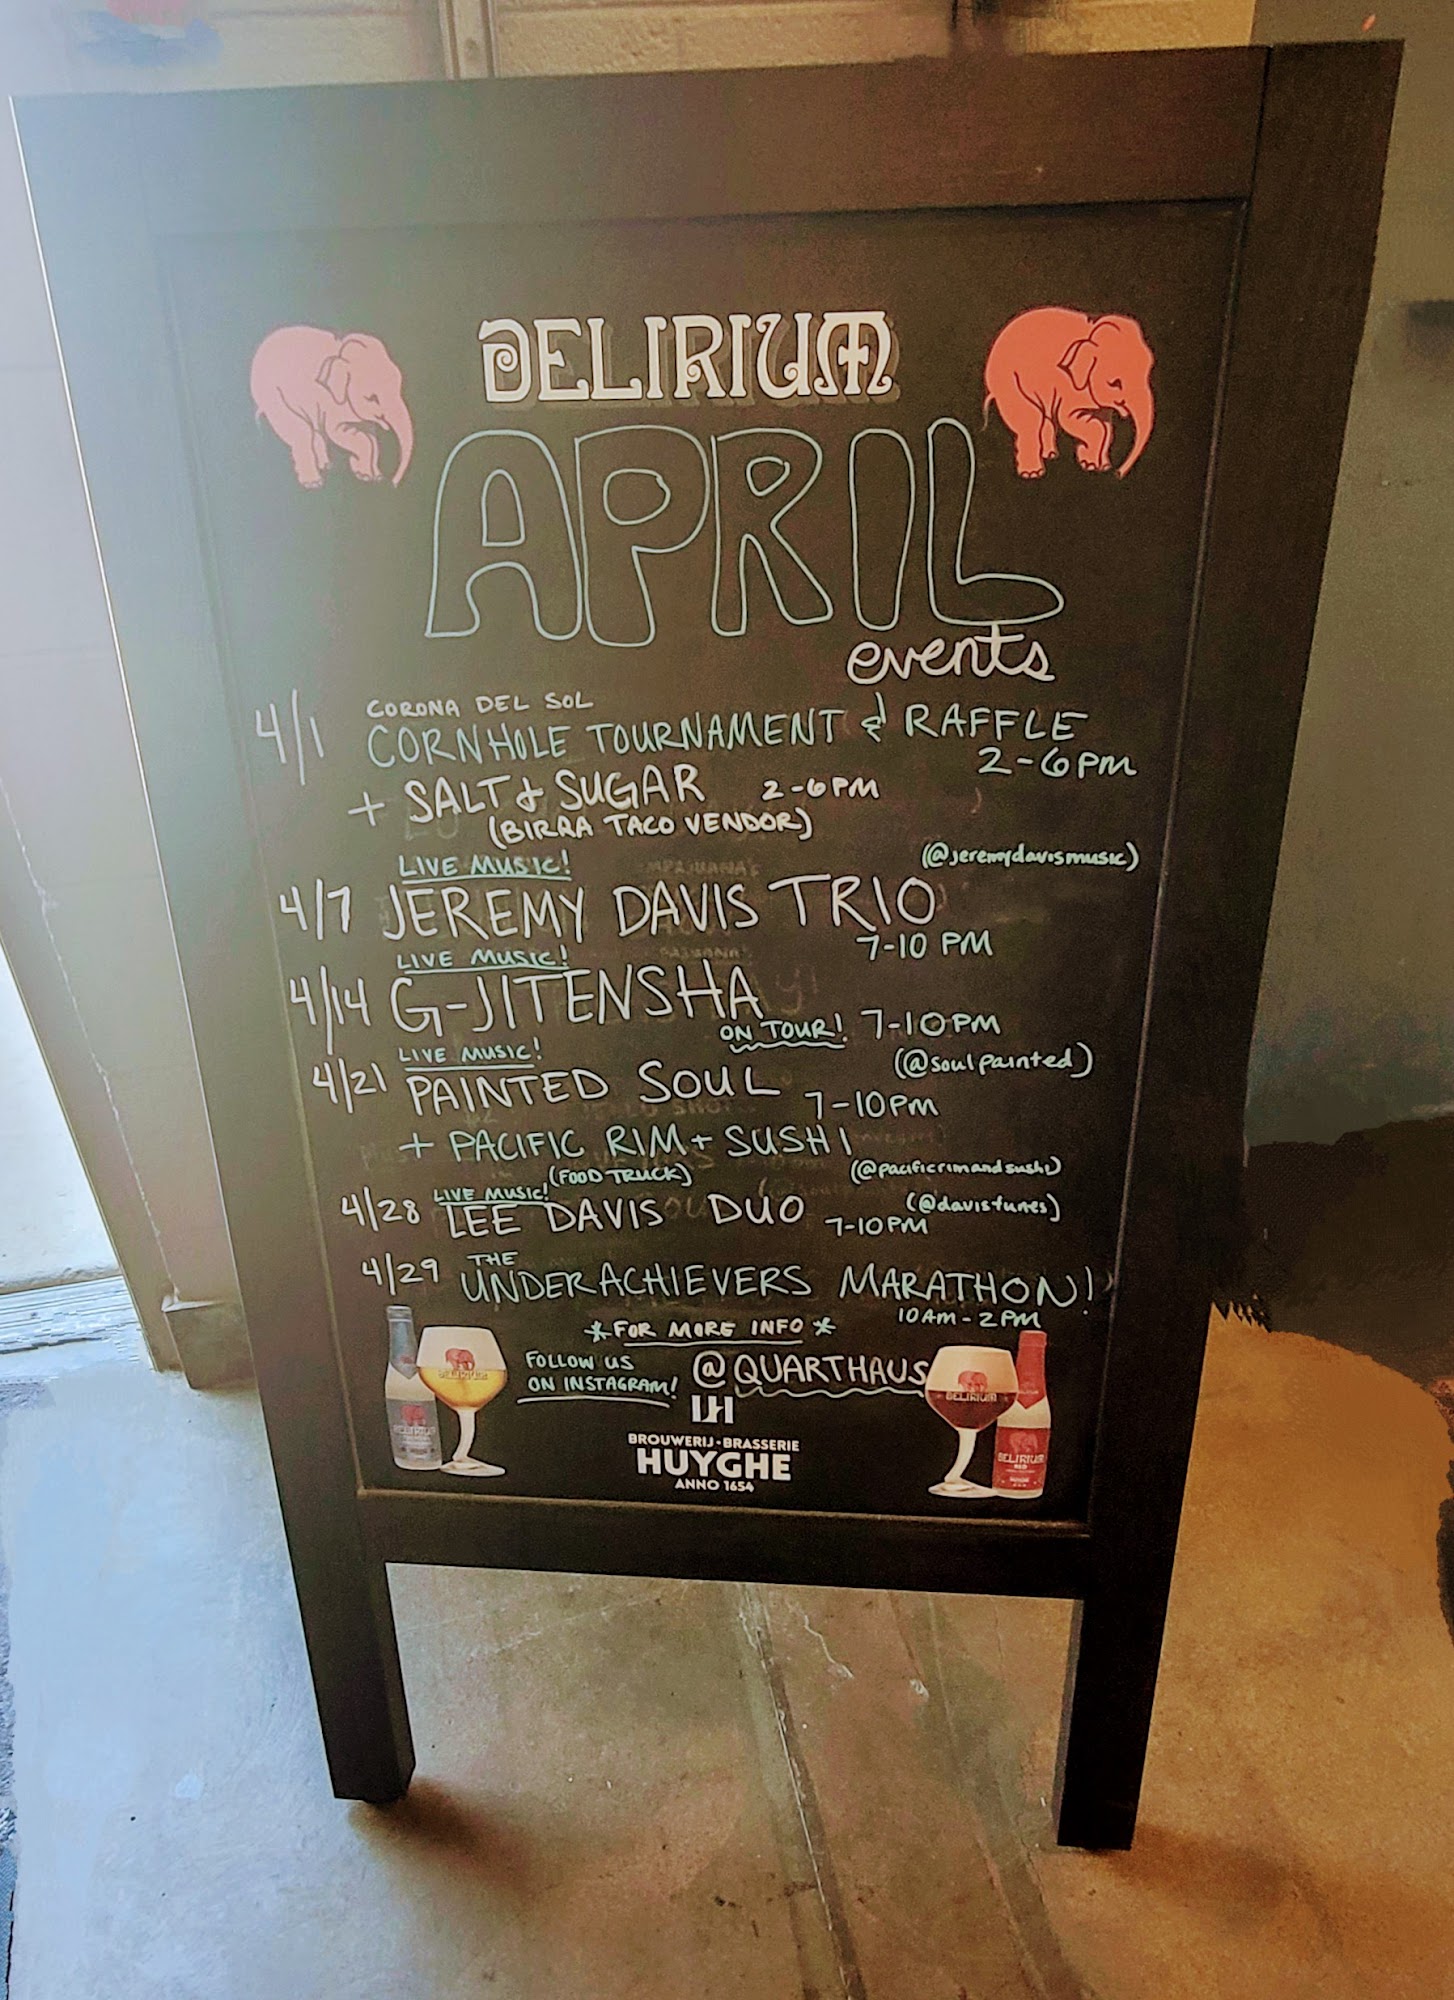 DELIRIUM
APRIL
events
4/1 CORONA DEL SOL
CORNHOLE TOURNAMENT & RAFFLE
2-6PM
+ SALT & SUGAR 2-6PM
(BIRRA TACO VENDOR)
LIVE MUSIC! (@jeremydavismusic)
4/7 JEREMY DAVIS TRIO
7-10 PM
LIVE MUSIC!
4/14 G-JITENSHA
ON TOUR! 7-10PM
LIVE MUSIC! (@soulpainted)
4/21 PAINTED SOUL 7-10PM
+ PACIFIC RIM + SUSHI
(FOOD TRUCK) (@pacificrimandsushi)
LIVE MUSIC! (@davistunes)
4/28 LEE DAVIS DUO 7-10PM
4/29 THE
UNDERACHIEVERS MARATHON!
10AM-2PM
*FOR MORE INFO*
FOLLOW US
ON INSTAGRAM! @QUARTHAUS
BROUWERIJ·BRASSERIE
HUYGHE
ANNO 1654
DELIRIUM
DELIRIUM
DELIRIUM
DELIRIUM
RED